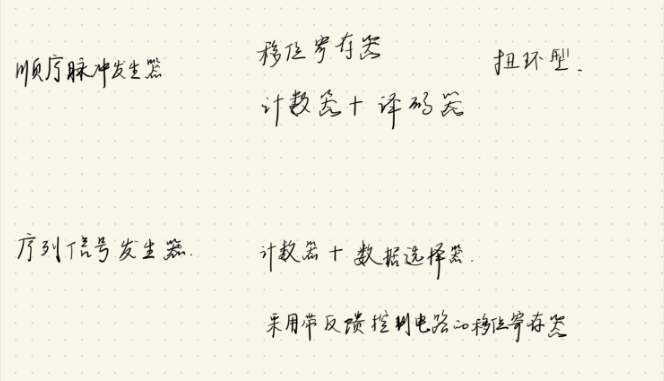 顺序脉冲发生器
移位寄存器
扭环型.
计数器+译码器
序列信号发生器.
计数器+数据选择器.
采用带反馈控制电路的移位寄存器